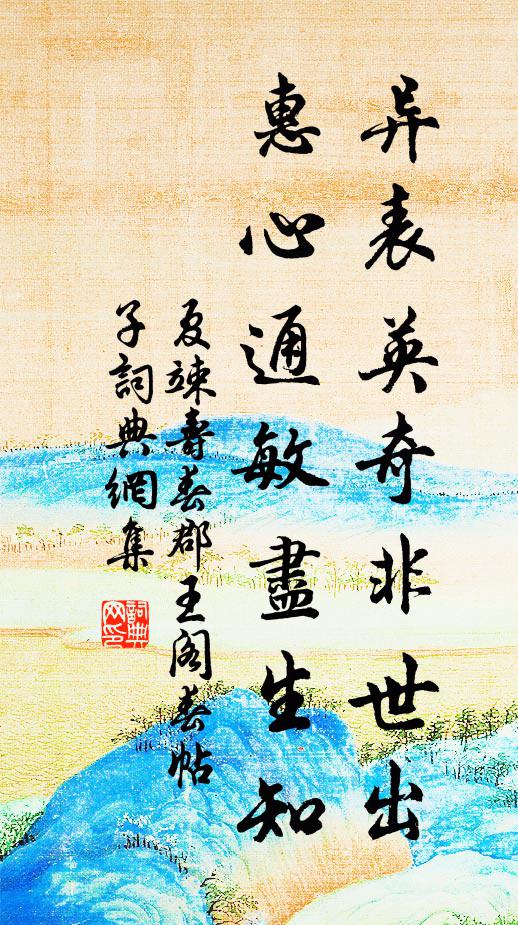 异表英奇非世出
惠心通敏盡生知
夏竦壽春郡王閣春帖
子詞典網集
詞典
网印